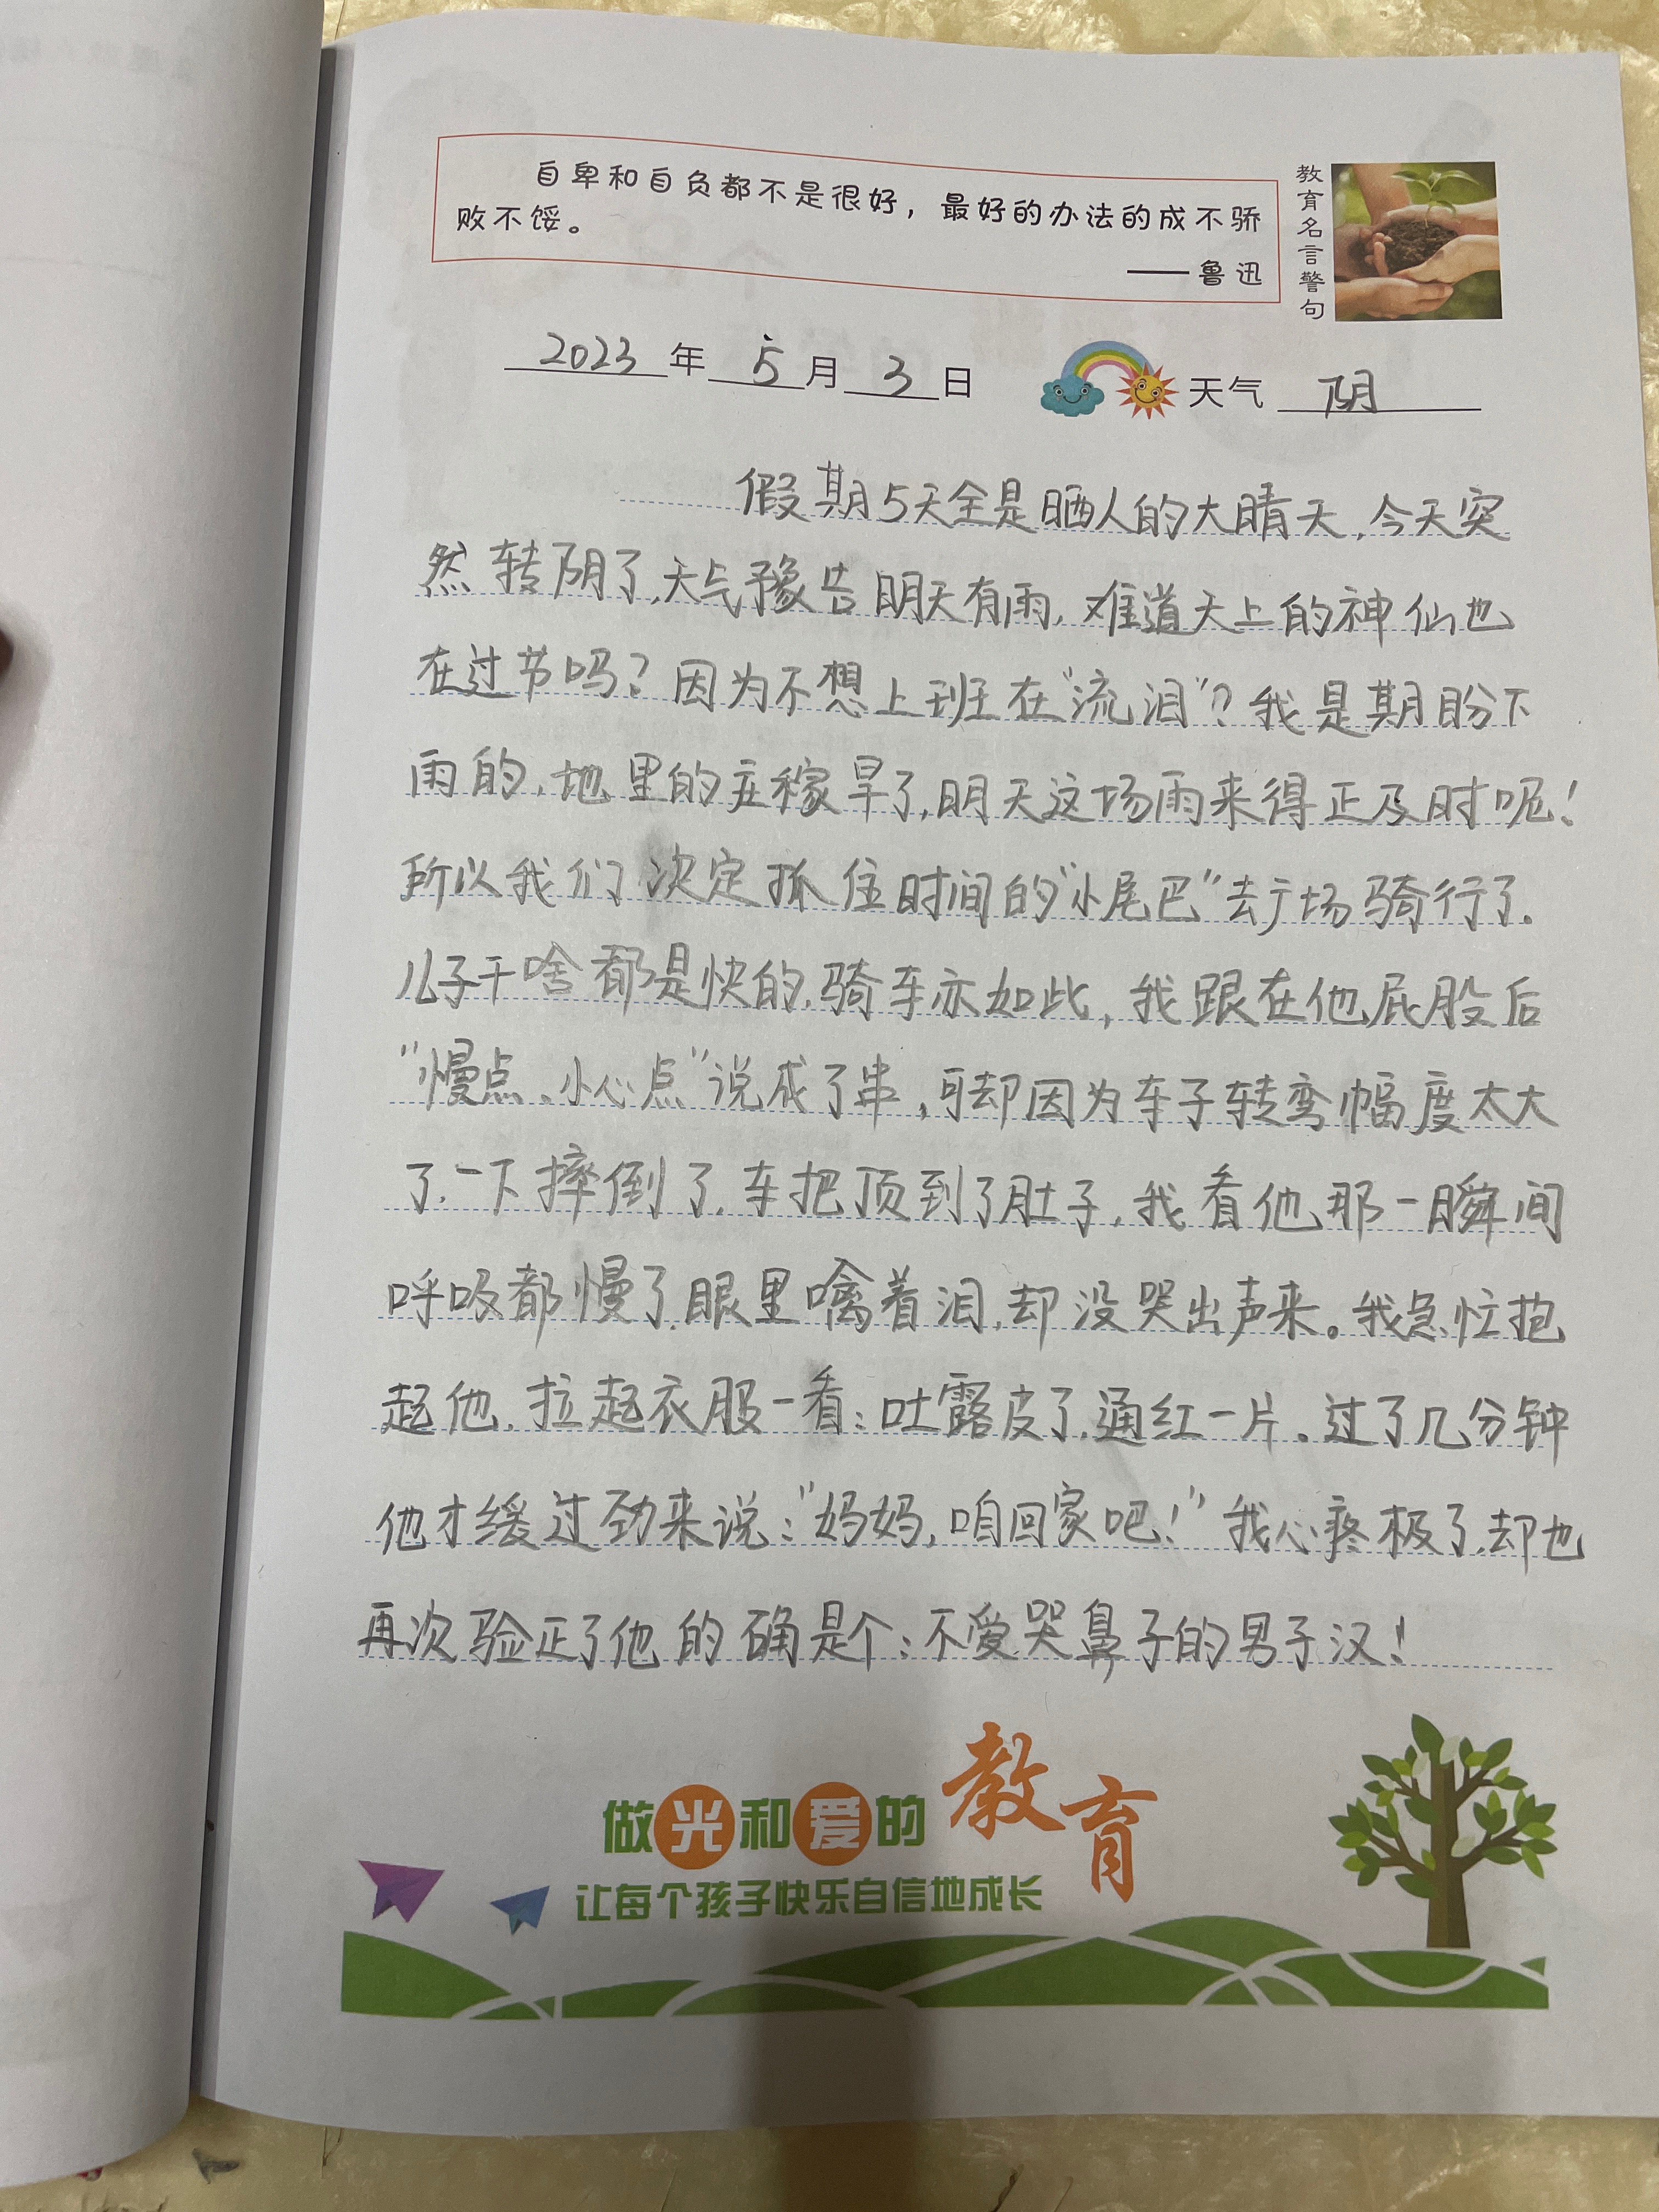 自卑和自负都不是很好，最好的办法的成不骄
败不馁。
——鲁迅
教育名言警句
2023年5月3日 天气 阴
假期5天全是晒人的大晴天，今天突
然转阴了，天气豫告明天有雨，难道天上的神仙也
在过节吗？因为不想上班在“流泪”？我是期盼下
雨的，地里的庄稼旱了，明天这场雨来得正及时呢！
所以我们决定抓住时间的“小尾巴”去广场骑行了。
儿子干啥都是快的，骑车亦如此，我跟在他屁股后
“慢点、小心点”说成了串，可却因为车子转弯幅度太大
了，一下摔倒了，车把顶到了肚子，我看他那一瞬间
呼吸都慢了，眼里噙着泪，却没哭出声来。我急忙抱
起他，拉起衣服一看：吐露皮了，通红一片。过了几分钟
他才缓过劲来说：“妈妈，咱回家吧！”我心疼极了，却也
再次验正了他的确是个：不爱哭鼻子的男子汉！
做光和爱的教育
让每个孩子快乐自信地成长